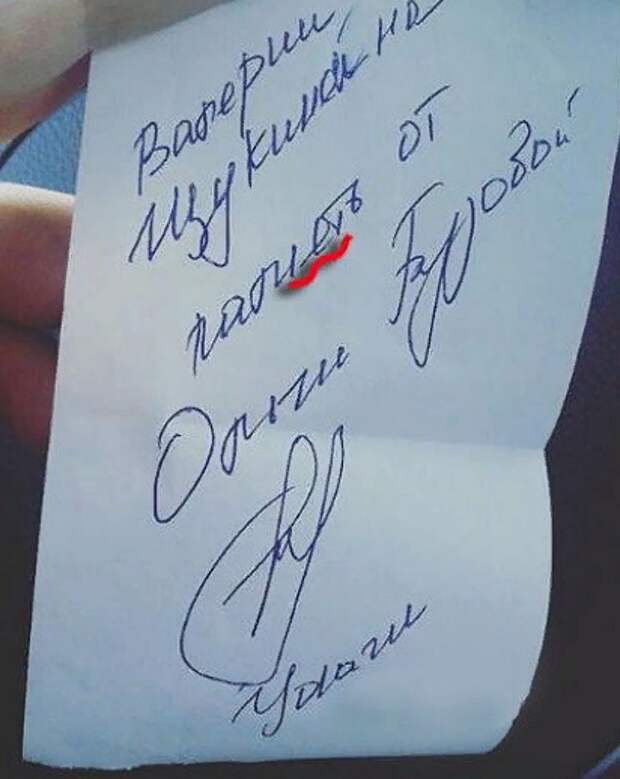 Валерии,
Щукиной на
паметь от
Ольги Бузовой
Удачи